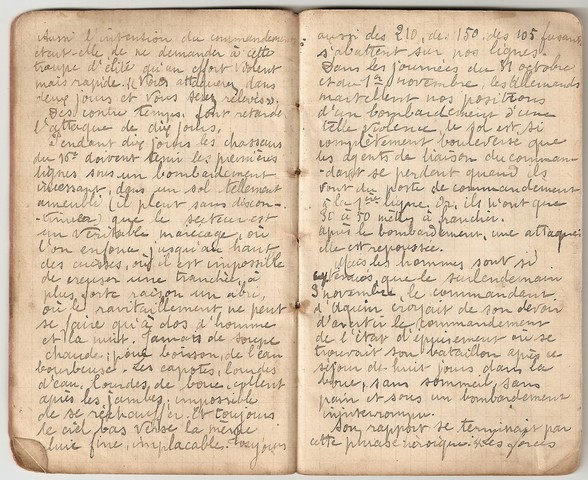 Aussi l'intention du commandement
était-elle de ne demander à cette
troupe d'élite qu'un effort violent
mais rapide. "Vous attaquerez dans
deux jours et vous serez relevés".
Des contre temps font retarder
l'attaque de dix jours.
Pendant dix jours les chasseurs
du 16e doivent tenir les premières
lignes sous un bombardement
incessant, dans un sol tellement
ameubli (il pleut sans discon-
tinuer) que le secteur est
un véritable marécage, où
l'on enfonce jusqu'au haut
des cuisses, où il est impossible
de creuser une tranchée, à
plus forte raison un abri,
où le ravitaillement ne peut
se faire qu'à dos d'homme
et la nuit. Jamais de soupe
chaude; pour boisson, de l'eau
bourbeuse. Les capotes, lourdes
d'eau, lourdes de boue, collent
après les jambes; impossible
de se réchauffer. Et toujours
le ciel bas verse la même
pluie fine, implacable. Toujours
aussi des 210, des 150, des 105 fusants
s'abattent sur nos lignes.
Dans les journées du 31 octobre
et du 1er novembre, les allemands
martèlent nos positions
d'un bombardement d'une
telle violence, le sol est si
complètement bouleversé que
les agents de liaison du comman-
-dant se perdent quand ils
vont du poste de commandement
à la 1ère ligne. Or, ils n'ont que
30 à 50 mètres à franchir.
Après le bombardement, une attaque
elle est repoussée.
Mais les hommes sont si
exténués, que le surlendemain
3 novembre, le commandant
d'Aquin croyait de son devoir
d'avertir le commandement
de l'état d'épuisement où se
trouvait son bataillon après ce
séjour de huit jours dans la
boue, sans sommeil, sans
pain et sous un bombardement
ininterrompu.
Son rapport se terminait par
cette phrase héroïque: "Les forces